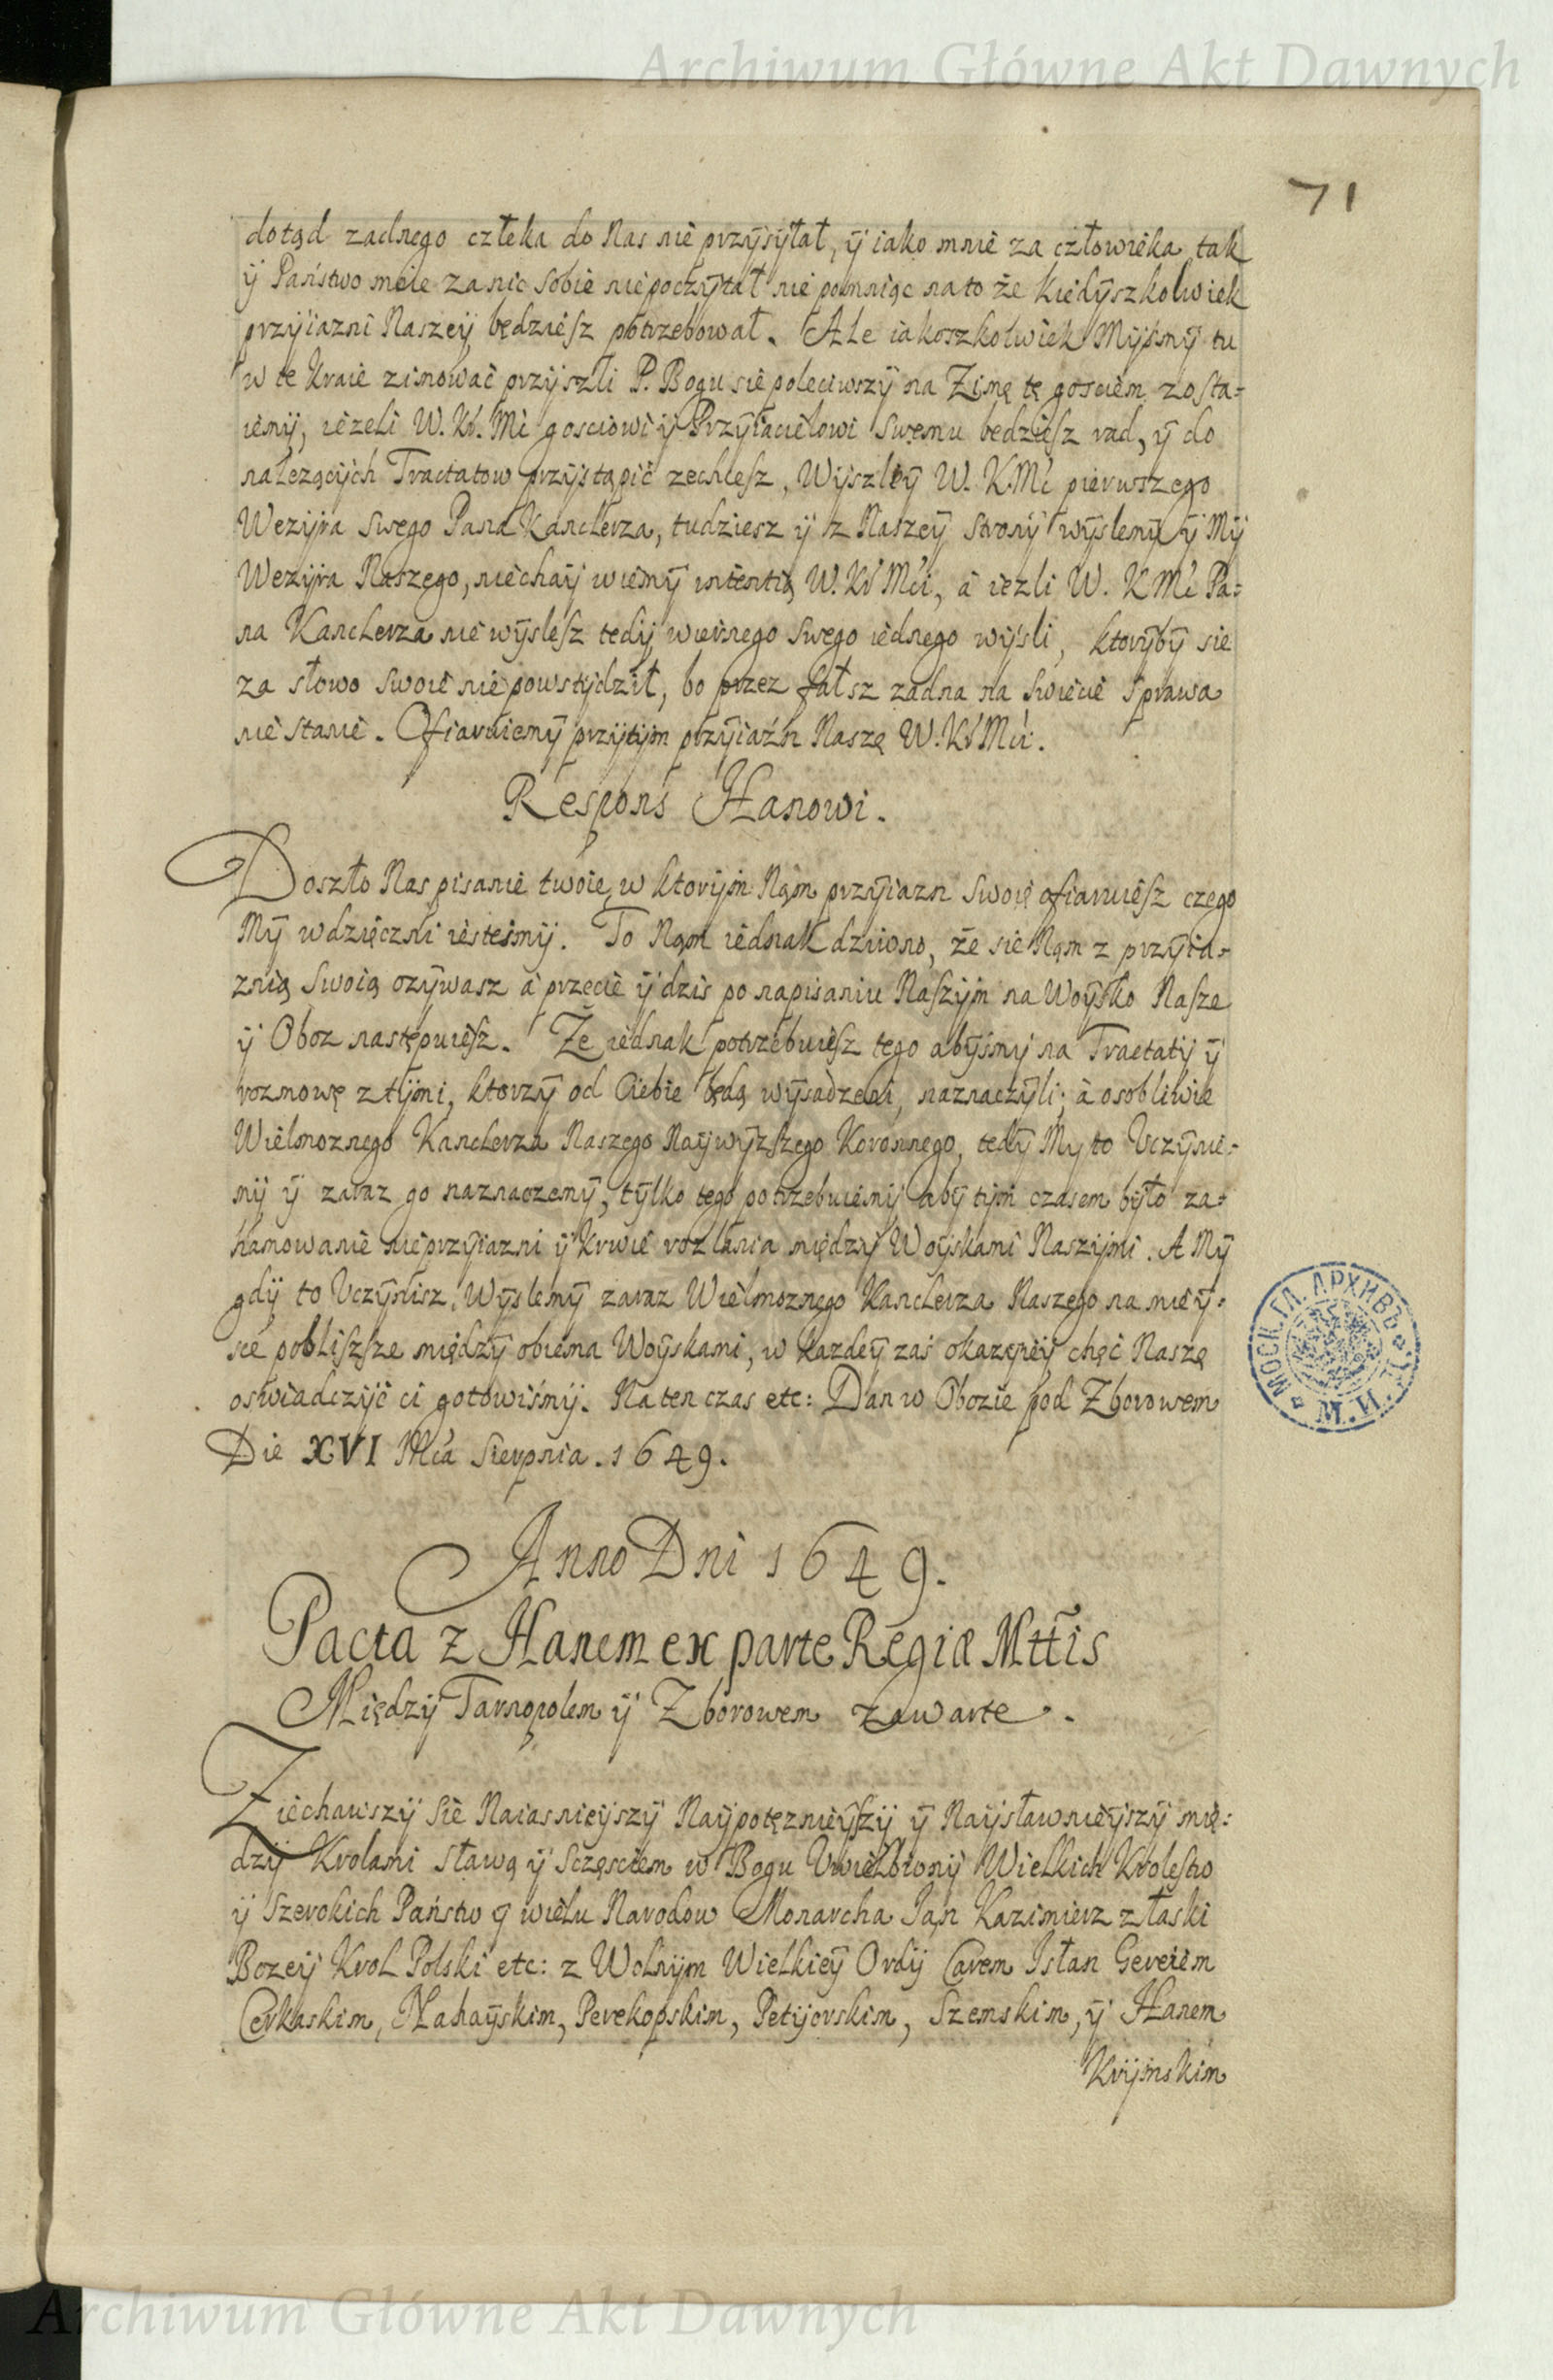 Archiwum Główne Akt Dawnych
71
dotąd zadnego człeka do Nas nie przysyłał, ÿ iako mnie za człowieka, tak
ÿ Państwo moie za nic sobie niepoczytał nie pomniąc nato że kiedyszkolwiek
przyiazni Naszey będziesz potrzebował. Ale iakoszkolwiek Myśmy tu
w te kraie zimować przyszli P. Bogu sie poleciwszy na Zimę tę gosciem zosta=
iemy, iezeli W. Kr. Mć gosciowi ÿ Przyiacielowi swemu będziesz rad, ÿ do
nalezących Tractatow przystąpić zechcesz, Wyszley W. K Mć pierwszego
Wezyra swego Pana Kanclerza, tudziesz ÿ z Naszey strony wyslemy ÿ My
Wezyra Naszego, niechay wiemy intentią W. Kr Mci, à iezli W. K Mć Pa=
na Kanclerza nie wyslesz tedy wiernego swego iednego wysli, ktoryby sie
za słowo swoie nie powstydził, bo przez fałsz zadna na swiecie sprawa
nie stanie. Ofiaruiemy przytym przyiaźń Naszę W. Kr Mci.
Respons Hanowi.
Doszło Nas pisanie twoie, w ktorym Nąm przyiazn swoię ofiaruiesz czego
My wdzięczni iestesmy. To Nąm iednak dziwno, że sie Nąm z przyia=
znią swoią ozywasz à przecie ÿ dzis po napisaniu Naszym na Woysko Nasze
ÿ Oboz następuiesz. Że iednak potrzebuiesz tego abysmy na Tractaty ÿ
rozmowę z tymi, ktorzy od Ciebie będą wysadzeni, naznaczyli; à osobliwie
Wielmoznego Kanclerza Naszego Naywyzszego Koronnego, tedy My to Uczynie=
my ÿ zaraz go naznaczemy, tylko tego potrzebuiemy aby tym czasem było za=
hamowanie nieprzyiazni ÿ krwie rozlania między Woyskami Naszymi. A My
gdy to Uczynisz, Wyslemy zaraz Wielmoznego Kanclerza Naszego na miey=
sce pobliszsze między obiema Woyskami, w kazdey zas okazyiey chęć Naszę
oswiadczyć ci gotowismy. Na ten czas etc: Dan w Obozie pod Zborowem
Die XVI Mca Sierpnia. 1649.
МОСК. ГЛ. АРХИВЪ М. И. Д.
Anno Dni 1649.
Pacta z Hanem ex parte Regiæ Mttis
Między Tarnopolem ÿ Zborowem zawarte.
Ziechawszy Sie Naiasnieyszy Naypotęznieyszy ÿ Naysławnieyszy mię=
dzy Krolami sławą ÿ Sczęsciem w Bogu Uwielbiony Wielkich Krolestw
ÿ Szerokich Państw ÿ wielu Narodow Monarcha Ian Kazimierz z łaski
Bozey Krol Polski etc: z Wolnym Wielkiey Ordy Carem Isłan Gereiem
Cerkaskim, Nahayskim, Perekopskim, Petyorskim, Szemskim, ÿ Hanem
Krymskim
Archiwum Główne Akt Dawnych